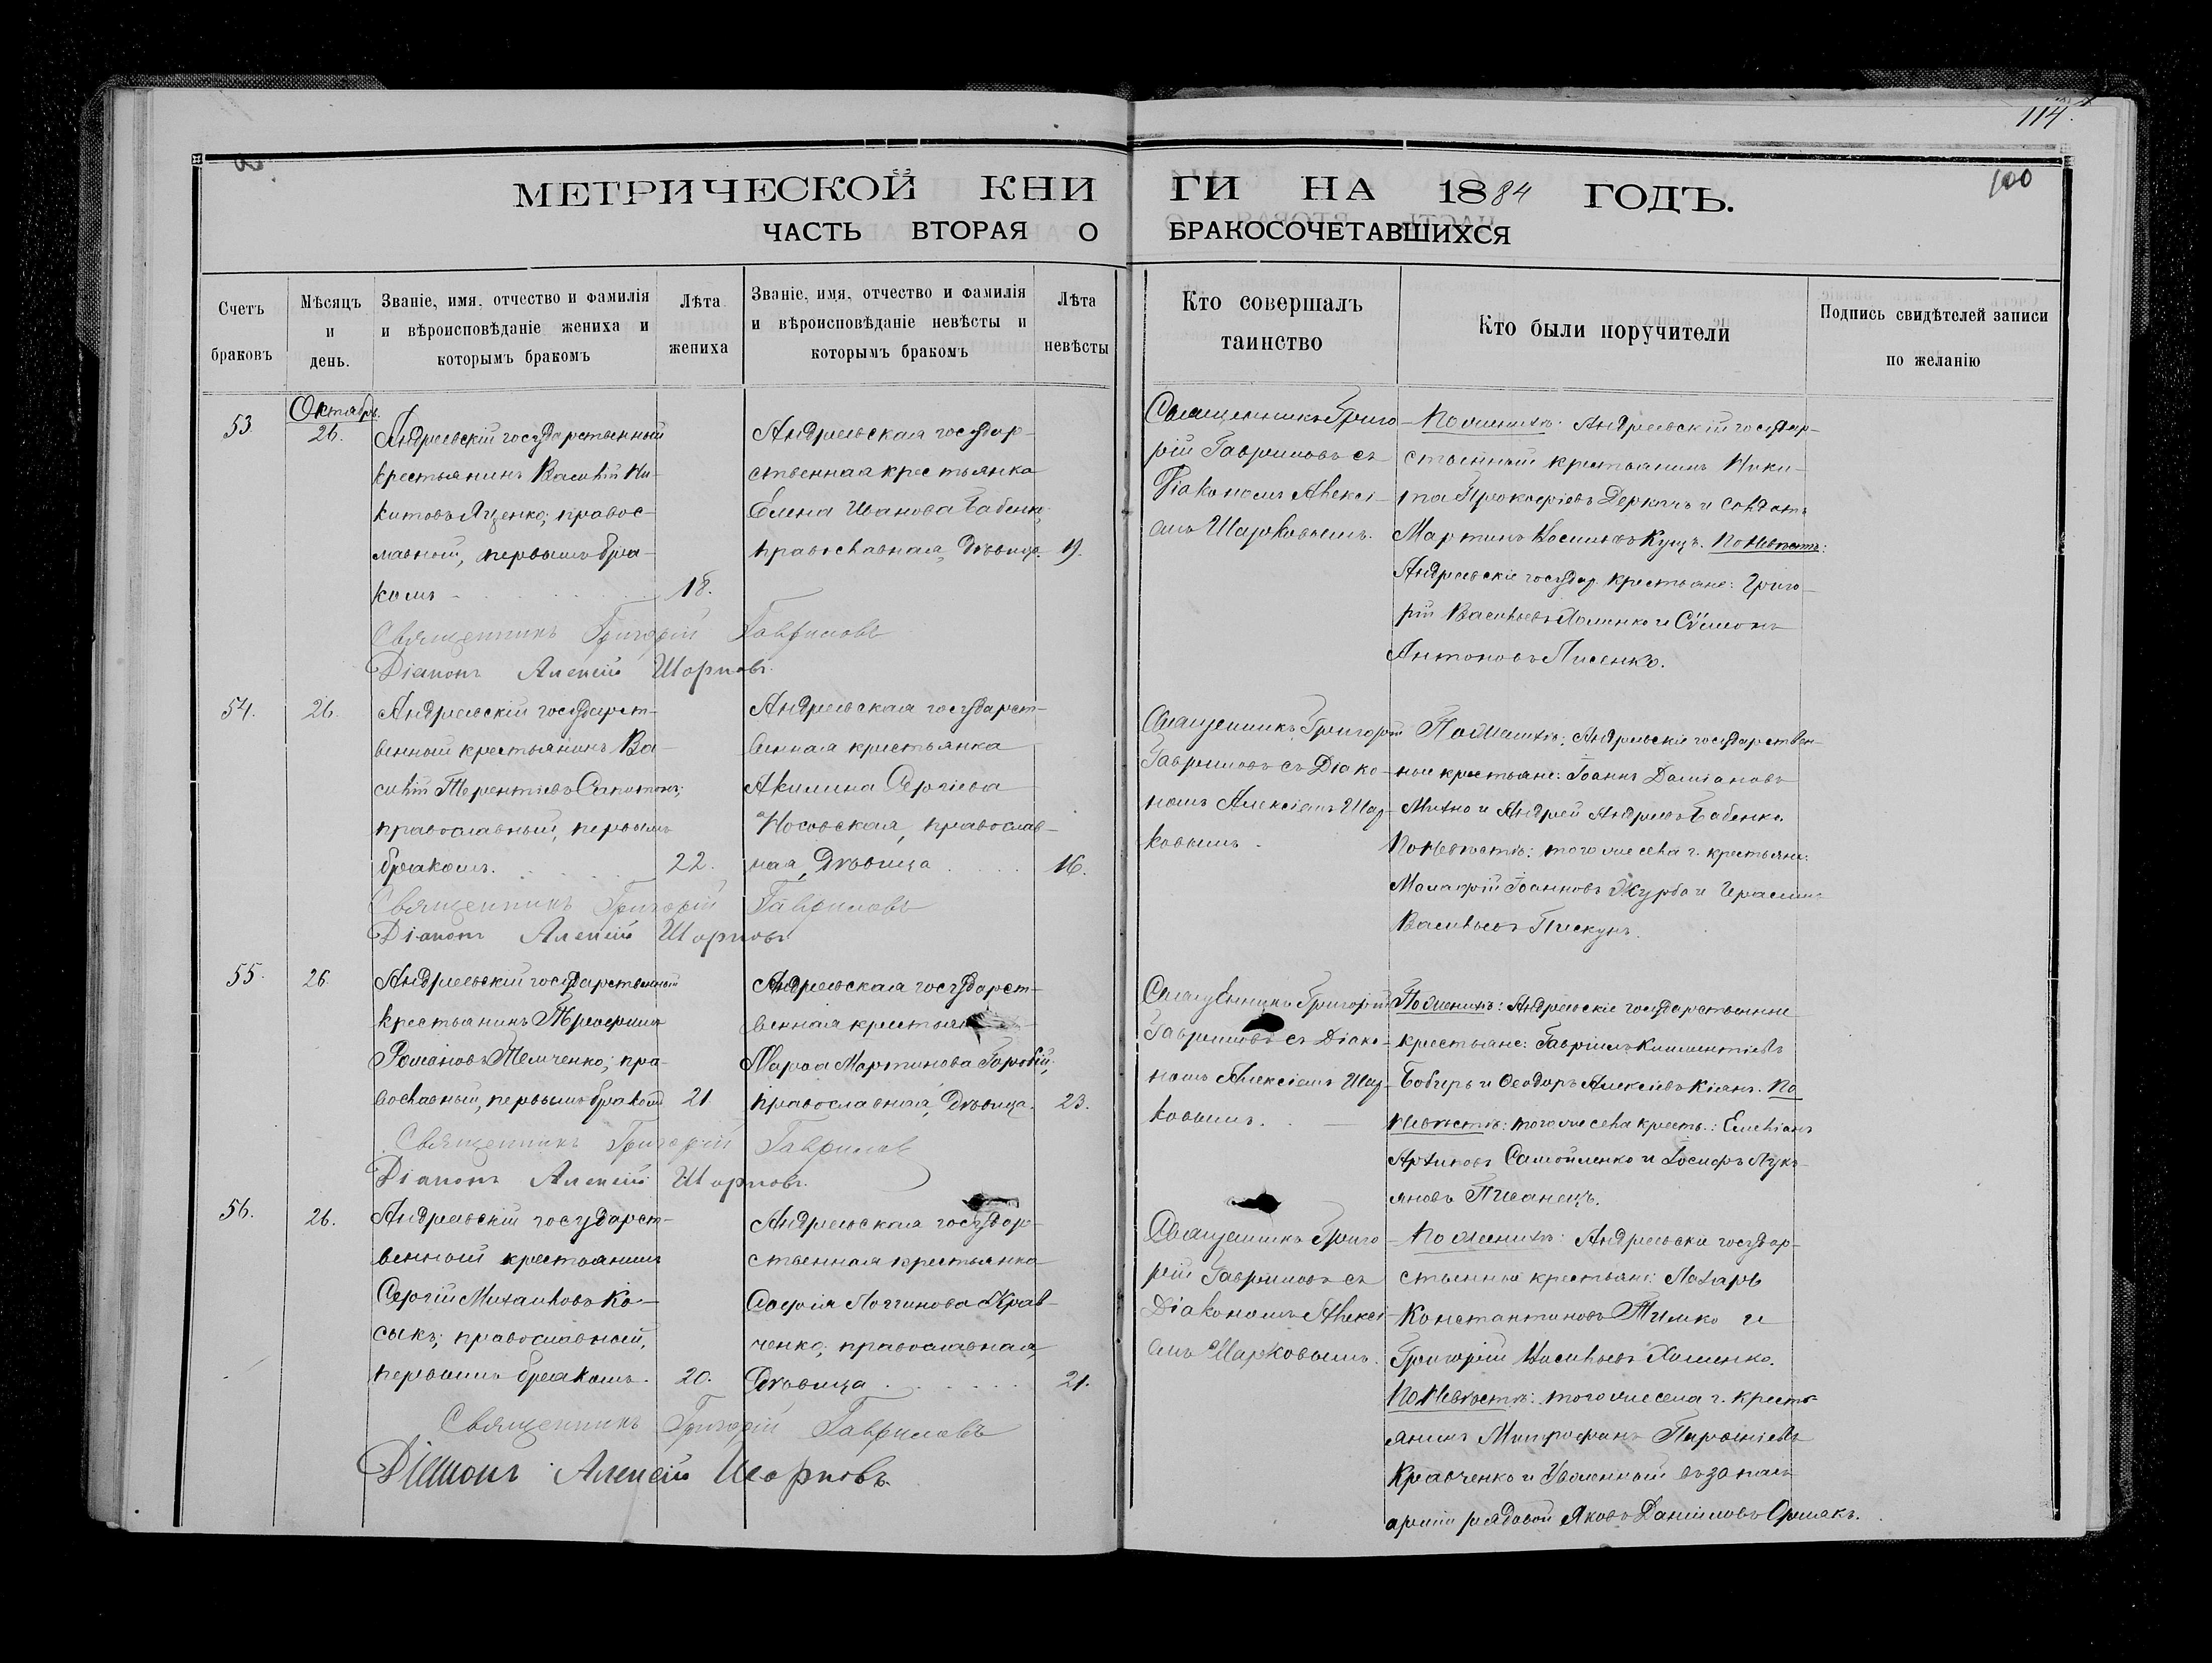 114.
100
МЕТРИЧЕСКОЙ КНИ
ГИ НА 1884 ГОДЪ.
ЧАСТЬ ВТОРАЯ О
БРАКОСОЧЕТАВШИХСЯ
Счетъ браковъ
Мѣсяцъ и день.
Званіе, имя, отчество и фамилія и вѣроисповѣданіе жениха и которымъ бракомъ
Лѣта жениха
Званіе, имя, отчество и фамилія и вѣроисповѣданіе невѣсты и которымъ бракомъ
Лѣта невѣсты
Кто совершалъ таинство
Кто были поручители
Подпись свидѣтелей записи по желанію
53
Октябрь.
26.
Андреевскій государственный
крестьянинъ Василій Ни-
китовъ Яценко; правос-
лавный, первымъ бра-
комъ
18.
Андреевская государ-
ственная крестьянка
Елена Иванова Бабенко,
православная, Дѣвица.
19.
Священникъ Григо-
рій Гавриловъ съ
Діакономъ Алексі-
емъ Шарковымъ.
По женихѣ: Андреевскій государ-
ственный крестьянинъ Ники-
та Прокофіевъ Деркачъ и солдатъ
Мартинъ Васильевъ Куцъ. По невѣстѣ:
Андреевскіе государ. крестьяне: Григо-
рій Васильевъ Хоменко и Сѵмеонъ
Антоновъ Лисенко.
Священникъ Григорій Гавриловъ
Діаконъ Алексій Шарковъ.
54.
26.
Андреевскій государст-
венный крестьянинъ Ва-
силій Терентіевъ
православный, первымъ
бракомъ.
22.
Андреевская государст-
венная крестьянка
Акилина Сергіева
Носовская, православ-
ная, Дѣвица
16.
Священникъ Григорій
Гавриловъ съ Діако-
номъ Алексіемъ Шар-
ковымъ.
По женихѣ: Андреевскіе государствен-
ные крестьяне: Іоаннъ Даміановъ
Михно и Андрей Андреевъ Бабенко.
По невѣстѣ: того же села г. крестьяне:
Малафій Іоанновъ Журба и Герасимъ
Васильевъ Пискунъ.
Священникъ Григорій Гавриловъ
Діаконъ Алексій Шарковъ
55.
26.
Андреевскій государственный
крестьянинъ Трофимъ
Романовъ Темченко; пра-
вославный, первымъ бракомъ
21
Андреевская государст-
венная крестьян
Марѳа Мартинова
православная, Дѣвица.
23.
Священникъ Григорій
Гавриловъ съ Діако-
номъ Алексіемъ Шар-
ковымъ.
По женихѣ: Андреевскіе государственные
крестьяне: Гавріилъ Климентіевъ
Бобырь и Ѳеодоръ Алексіевъ Кіянъ. По
невѣстѣ: того же села кресть.: Емеліанъ
Архиповъ Самойленко и Іосифъ Лукі-
яновъ Пиванецъ.
Священникъ Григорій Гавриловъ
Діаконъ Алексій Шарковъ.
56.
26.
Андреевскій государст-
венный крестьянинъ
Сергій Михаиловъ Ко-
сыкъ; православный,
первымъ бракомъ.
20.
Андреевская государ-
ственная крестьянка
Софія Логгинова Крав-
ченко; православная,
Дѣвица
21.
Священникъ Григо-
рій Гавриловъ съ
Діакономъ Алексі-
емъ Шарковымъ.
По женихѣ: Андреевскіе государ-
ственные крестьяне: Лазарь
Константиновъ Тимко и
Григорій Васильевъ Хоменко.
По невѣстѣ: того же села г. кресть-
янинъ Митрофанъ
Кравченко и Уволенный въ запасъ
арміи рядовой Яковъ Даніиловъ
Священникъ Григорій Гавриловъ
Діаконъ Алексій Шарковъ.